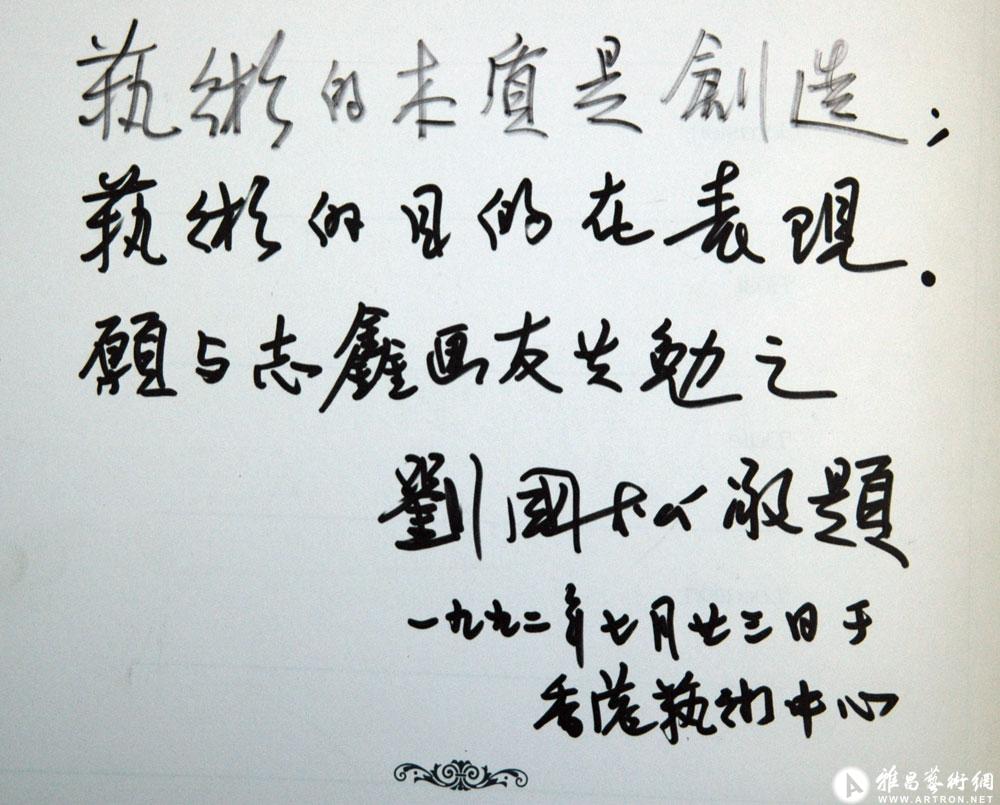 藝術的本质是創造;
藝術的目的在表現.
願与志鑫画友共勉之
劉國松敬題
一九九二年七月廿三日于
香港藝術中心
雅昌藝術網
WWW.ARTRON.NET